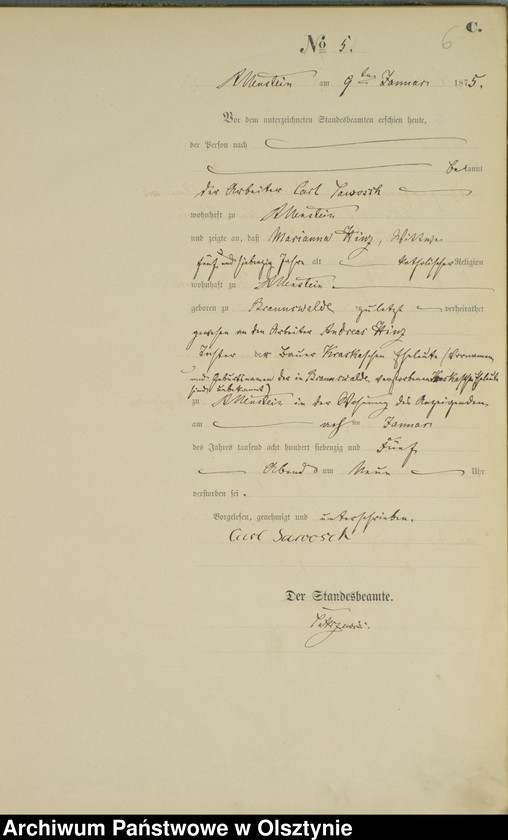 6 C.
No 5.
Allenstein am 9ten Januar 1875.
Vor dem unterzeichneten Standesbeamten erschien heute,
der Person nach
bekannt
der Arbeiter Carl Saworsk
wohnhaft zu Allenstein
und zeigte an, daß Marianna Hinz, Wittwe
fünf und siebenzig Jahre alt katholischer Religion
wohnhaft zu Allenstein
geboren zu Braunswalde zuletzt verheirathet
gewesen an den Arbeiter Andreas Hinz
Tochter der Bauer Kraskaschen Eheleute (Vornamen
und Geburtsnamen der in Braunswalde verstorbenen Kraskaschen Eheleute
sind unbekannt)
zu Allenstein in der Wohnung des Anzeigenden
am acht ten Januar
des Jahres tausend acht hundert siebenzig und Fünf
Abends um Neun Uhr
verstorben sei.
Vorgelesen, genehmigt und unterschrieben.
Carl Saworsk
Der Standesbeamte.
Archiwum Państwowe w Olsztynie